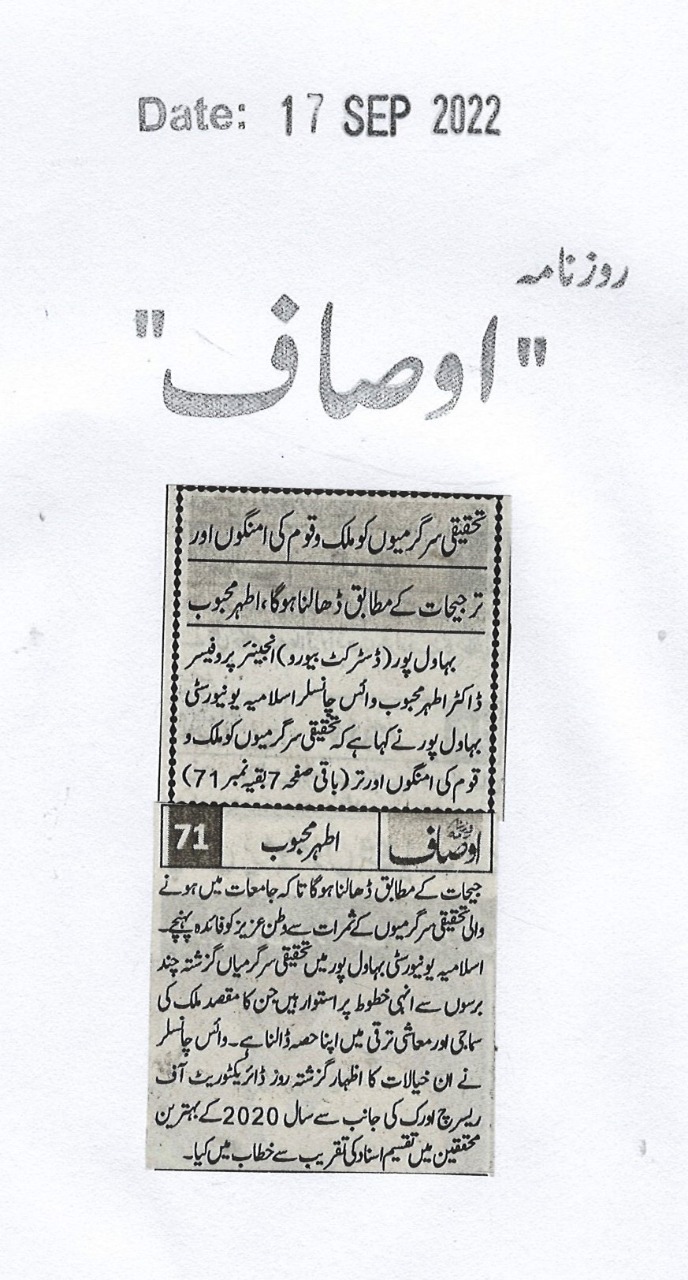 Date: 17 SEP 2022
روزنامہ
"اوصاف"
تحقیقی سرگرمیوں کو ملک وقوم کی امنگوں اور
ترجیحات کے مطابق ڈھالنا ہوگا، اطہر محبوب
بہاول پور (ڈسٹرکٹ بیورو) انجینئر پروفیسر
ڈاکٹر اطہر محبوب وائس چانسلر اسلامیہ یونیورسٹی
بہاول پور نے کہا ہے کہ تحقیقی سرگرمیوں کو ملک و
قوم کی امنگوں اور تر (باقی صفحہ 7 بقیہ نمبر 71)
روزنامہ اوصاف اطہر محبوب 71
جیحات کے مطابق ڈھالنا ہوگا تاکہ جامعات میں ہونے
والی تحقیقی سرگرمیوں کے ثمرات سے وطن عزیز کو فائدہ پہنچے۔
اسلامیہ یونیورسٹی بہاول پور میں تحقیقی سرگرمیاں گزشتہ چند
برسوں سے انہی خطوط پر استوار ہیں جن کا مقصد ملک کی
سماجی اور معاشی ترقی میں اپنا حصہ ڈالنا ہے۔ وائس چانسلر
نے ان خیالات کا اظہار گزشتہ روز ڈائریکٹوریٹ آف
ریسرچ اورک کی جانب سے سال 2020 کے بہترین
محققین میں تقسیم اسناد کی تقریب سے خطاب میں کیا۔